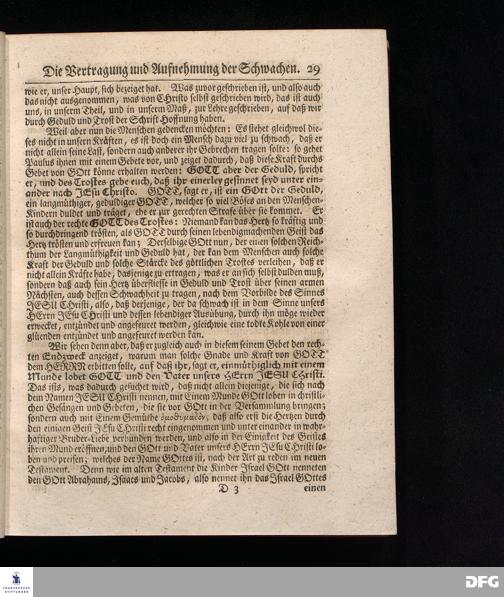 Die Vertragung und Aufnehmung der Schwachen. 29
wie er, unser Haupt, sich bezeiget hat. Was zuvor geschrieben ist, und also auch
das nicht ausgenommen, was von Christo selbst geschrieben wird, das ist auch
uns, in unserm Theil, und in unserm Maß, zur Lehre geschrieben, auf daß wir
durch Gedult und Trost der Schrift Hoffnung haben.
Weil aber nun die Menschen gedencken möchten: Es stehet gleichwol die-
ses nicht in unsern Kräften, es ist doch ein Mensch dazu viel zu schwach, daß er
nicht allein seine Last, sondern auch anderer ihr Gebrechen tragen solte: so gehet
Paulus ihnen mit einem Gebete vor, und zeiget dadurch, daß diese Kraft durchs
Gebet von GOtt könne erhalten werden: GOTT aber der Geduld, spricht
er, und des Trostes gebe euch, daß ihr einerley gesinnet seyd unter ein-
ander nach JEsu Christo. GOTT, sagt er, ist ein GOtt der Geduld,
ein langmüthiger, geduldiger GOTT, welcher so viel Böses an den Menschen-
Kindern duldet und träget, ehe er zur gerechten Strafe über sie kommet. Er
ist auch der rechte GOTT des Trostes: Niemand kan das Hertz so kräftig und
so durchdringend trösten, als GOTT durch seinen lebendigmachenden Geist das
Hertz trösten und erfreuen kan; Derselbige GOtt nun, der einen solchen Reich-
thum der Langmüthigkeit und Geduld hat, der kan dem Menschen auch solche
Kraft der Geduld und solche Stärcke des göttlichen Trostes verleihen, daß er
nicht allein Kräfte habe, dasjenige zu ertragen, was er an sich selbst dulden muß,
sondern daß auch sein Hertz überfliesse in Geduld und Trost über seinen armen
Nächsten, auch dessen Schwachheit zu tragen, nach dem Vorbilde des Sinnes
JESU Christi, also, daß derjenige, der da schwach ist in dem Sinne unsers
HErrn JEsu Christi und dessen lebendiger Ausübung, durch ihn möge wieder
erwecket, entzündet und angefeuret werden, gleichwie eine todte Kohle von einer
glüenden entzündet und angefeuret werden kan.
Wir sehen denn aber, daß er zugleich auch in diesem seinem Gebet den rech-
ten Endzweck anzeiget, warum man solche Gnade und Kraft von GOTT
dem HERRN erbitten solle, auf daß ihr, sagt er, einmüthiglich mit einem
Munde lobet GOTT und den Vater unsers HErrn JESU Christi.
Das ists, was dadurch gesuchet wird, daß nicht allein diejenige, die sich nach
dem Namen JESU Christi nennen, mit Einem Munde GOtt loben in christli-
chen Gesängen und Gebeten, die sie vor GOtt in der Versammlung bringen;
sondern auch mit Einem Gemüthe ὁμοθυμαδὸν, daß also erst die Hertzen durch
den einigen Geist JEsu Christi recht eingenommen und unter einander in wahr-
haftiger Bruder-Liebe verbunden werden, und also in der Einigkeit des Geistes
ihren Mund eröffnen, und den GOtt und Vater unsers HErrn JEsu Christi lo-
ben und preisen; welches der Name GOttes ist, nach der Art zu reden im neuen
Testament. Denn wie im alten Testament die Kinder Israel GOtt nenneten
den GOtt Abrahams, Isaacs und Jacobs, also nennet ihn das Israel GOttes
D 3 einen
FRANCKESCHE
STIFTUNGEN
DFG